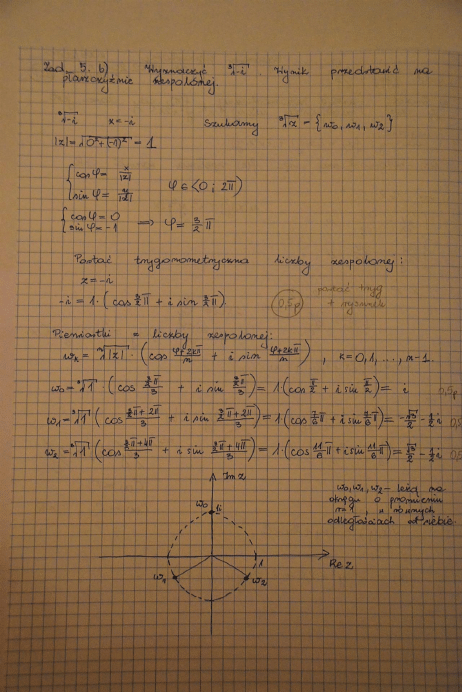 Zad. 5. b) Wyznaczyć ∛-i. Wynik przedstawić na
płaszczyźnie zespolonej.
∛-i z=-i Szukamy ∛z = {w₀, w₁, w₂}
|z| = √0²+(-1)² = 1
{cosφ = x/|z|
{sinφ = y/|z| φ ∈ <0; 2π)
{cosφ = 0
{sinφ = -1 ⟹ φ = 3/2 π
Postać trygonometryczna liczby zespolonej:
z = -i
-i = 1·(cos 3/2 π + i sin 3/2 π). 0,5p postać tryg
+ rysunek
Pierwiastki z liczby zespolonej:
wₖ = ⁿ√|z| · (cos φ+2kπ/n + i sin φ+2kπ/n), k=0,1,...,n-1.
w₀ = ³√1 · (cos 3/2π/3 + i sin 3/2π/3) = 1(cos π/2 + i sin π/2) = i 0,5p
w₁ = ³√1 (cos 3/2π+2π/3 + i sin 3/2π+2π/3) = 1(cos 7/6 π + i sin 7/6 π) = -√3/2 - 1/2 i 0,5
w₂ = ³√1 (cos 3/2π+4π/3 + i sin 3/2π+4π/3) = 1·(cos 11/6 π + i sin 11/6 π) = √3/2 - 1/2 i 0,5
Im z
w₀ i
w₀, w₁, w₂ - leżą na
okręgu o promieniu
r=1, w równych
odległościach od siebie.
1 Re z
w₁ w₂